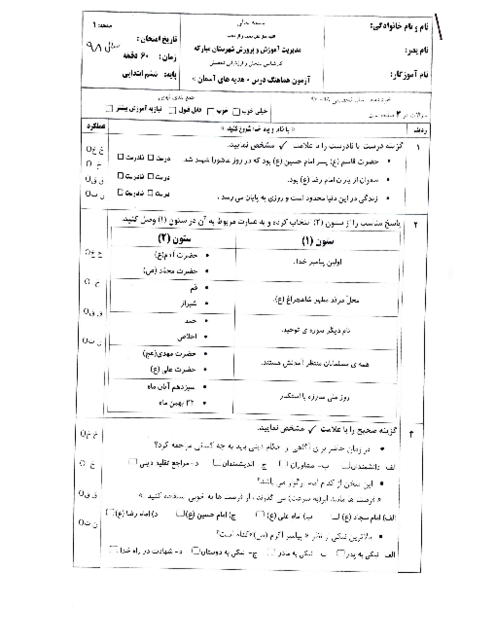 نام و نام خانوادگی:
نام پدر:
نام آموزگار:
مدیریت آموزش و پرورش شهرستان مبارکه
آزمون هماهنگ درس « هدیه های آسمان »
صفحه: ۱
تاریخ امتحان: سال ۹۸
زمان: ۶۰ دقیقه
پایه: ششم ابتدایی
خیلی خوب □ خوب □ قابل قبول □ نیازبه آموزش بیشتر □
ردیف
« با نام و یاد خدا شروع کنید »
عملکرد
۱
گزینه درست یا نادرست را با علامت ✓ مشخص نمایید.
حضرت قاسم (ع) پسر امام حسین (ع) بود که در روز عاشورا شهید شد. درست □ نادرست □
صفوان از یاران امام رضا (ع) بود. درست □ نادرست □
زندگی در این دنیا محدود است و روزی به پایان می رسد. درست □ نادرست □
۲
پاسخ مناسب را از ستون (۲) انتخاب کرده و به عبارت مربوط به آن در ستون (۱) وصل کنید.
ستون (۱)
ستون (۲)
اولین پیامبر خدا.
حضرت آدم(ع)
حضرت محمّد (ص)
محلّ مرقد مطهر شاهچراغ (ع).
قم
شیراز
نام دیگر سوره ی توحید.
حمد
اخلاص
همه ی مسلمانان منتظر آمدنش هستند.
حضرت مهدی(عج)
حضرت علی (ع)
روز ملی مبارزه با استکبار
سیزدهم آبان ماه
۲۲ بهمن ماه
۳
گزینه صحیح را با علامت ✓ مشخص نمایید.
در زمان حاضر برای آگاهی از احکام دینی باید به چه کسانی مراجعه کرد؟
الف- دانشمندان □ ب- مشاوران □ ج- اندیشمندان □ د- مراجع تقلید دینی □
این سخن از کدام امام بزرگوار می باشد؟
« فرصت ها مانند ابر(به سرعت) می گذرند، از فرصت ها به خوبی استفاده کنید.»
الف) امام سجاد (ع) □ ب) امام علی (ع) □ ج) امام حسین (ع) □ د) امام رضا (ع) □
بالاترین نیکی از نظر « پیامبر اکرم (ص)»کدام است؟
الف- نیکی به پدر □ ب- نیکی به مادر □ ج- نیکی به دوستان □ د- شهادت در راه خدا □